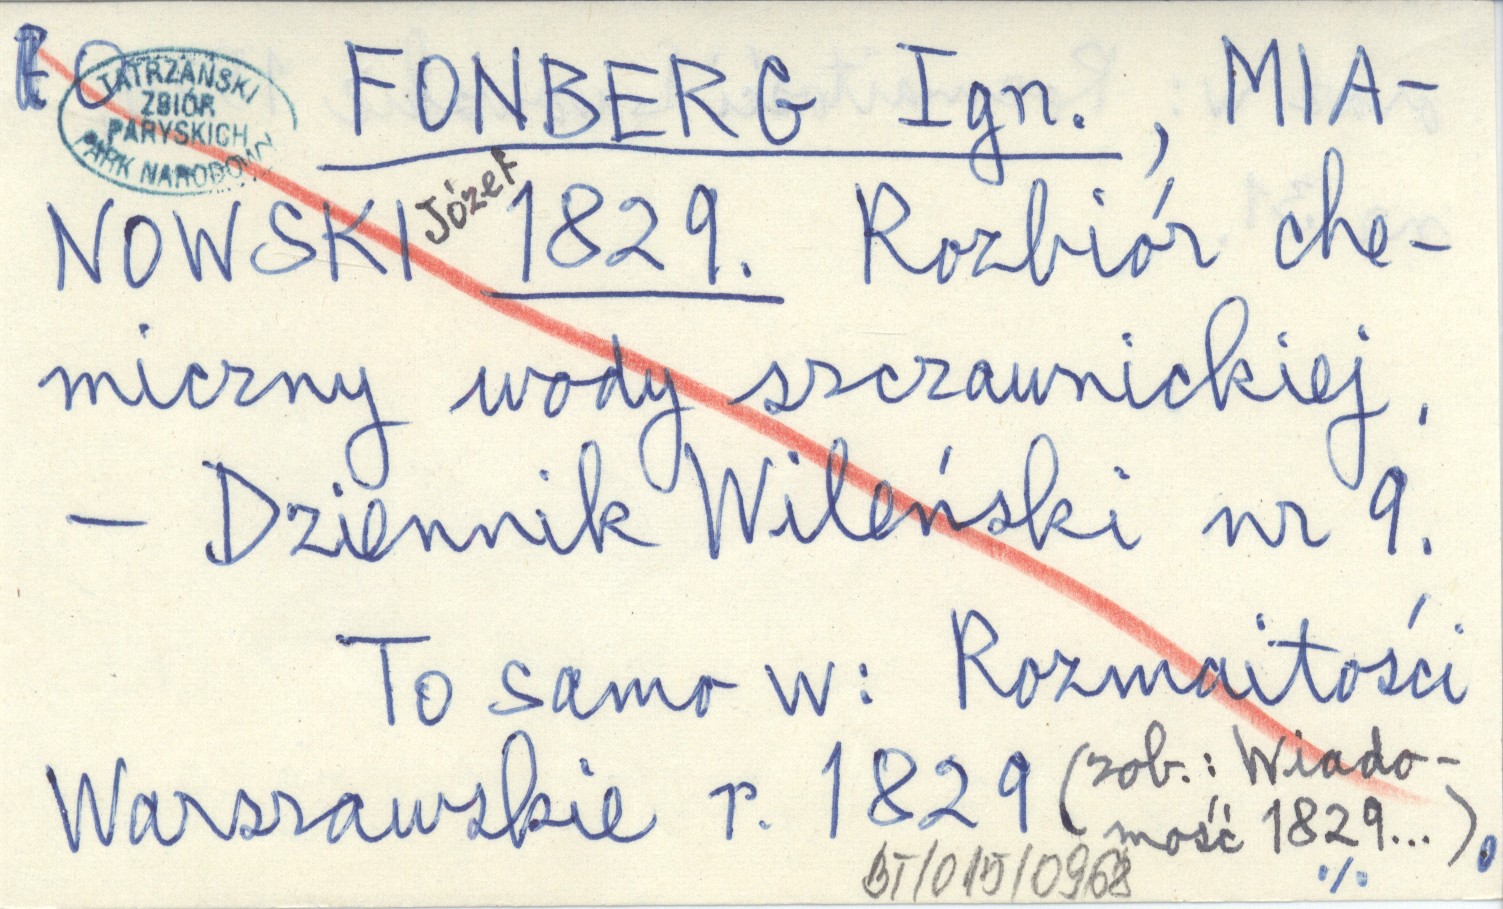 TATRZAŃSKI
ZBIÓR
PARYSKICH
PARK NARODOWY
FONBERG Ign., MIA-
NOWSKI Józef 1829. Rozbiór che-
miczny wody szczawnickiej.
- Dziennik Wileński nr 9.
To samo w: Rozmaitości
Warszawskie r. 1829 (zob.: Wiado-
mość 1829...).
BT/015/0968
·/·